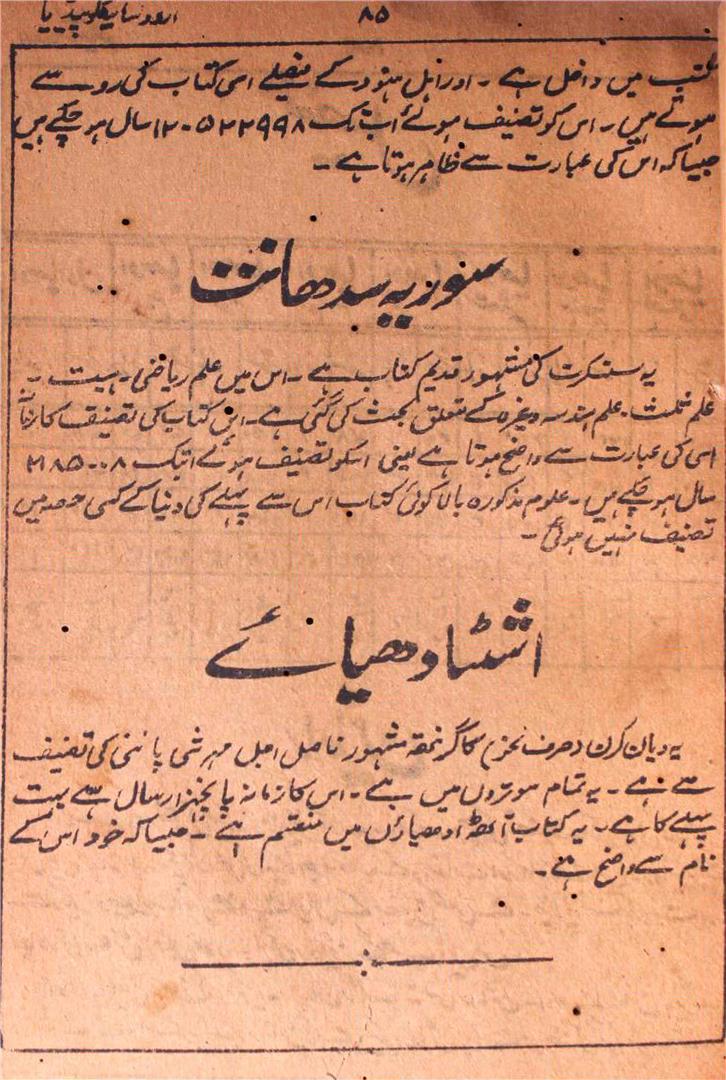 ۸۵ اردو سائیکلوپیڈیا
کتب میں داخل ہے ۔ اور اہل ہنود کے فیصلے اسی کتاب کی رو سے
ہوتے ہیں ۔ اس کو تصنیف ہوئے اب تک ۱۲۰۵۲۲۹۹۸ سال ہو چکے ہیں
جیسا کہ اس کی عبارت سے ظاہر ہوتا ہے ۔
سوریہ سدھانت
یہ سنسکرت کی مشہور قدیم کتاب ہے ۔ اس میں علم ریاضی ۔ ہیت ۔
علم مثلث ۔ علم ہندسہ وغیرہ کے متعلق بحث کی گئی ہے ۔ اس کتاب کی تصنیف کا زمانہ
اسی کی عبارت سے واضح ہوتا ہے یعنی اسکو تصنیف ہوئے ابتک ۲۱۸۵۰۰۸
سال ہو چکے ہیں ۔ علوم مذکورہ بالا کوئی کتاب اس سے پہلے کی دنیا کے کسی حصہ میں
تصنیف نہیں ہوئی ۔
اشٹادھیائے
یہ ویاکرن (صرف نحو) کا گرنتھ مشہور فاضل اجل مہرشی پاننی کی تصنیف
سے ہے ۔ یہ تمام سوتروں میں ہے ۔ اس کا زمانہ پانچہزار سال سے بہت
پہلے کا ہے ۔ یہ کتاب آٹھ ادھیاؤں میں منقسم ہے ۔ جیسا کہ خود اس کے
نام سے واضح ہے ۔